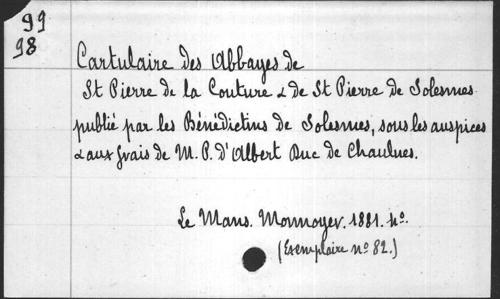 99
98
Cartulaire des Abbayes de
St Pierre de la Couture & de St Pierre de Solesmes
publié par les Bénédictins de Solesmes, sous les auspices
& aux frais de M. P. d'Albert Duc de Chaulnes.
Le Mans. Monnoyer. 1881. 4o.
(Exemplaire no 82.)